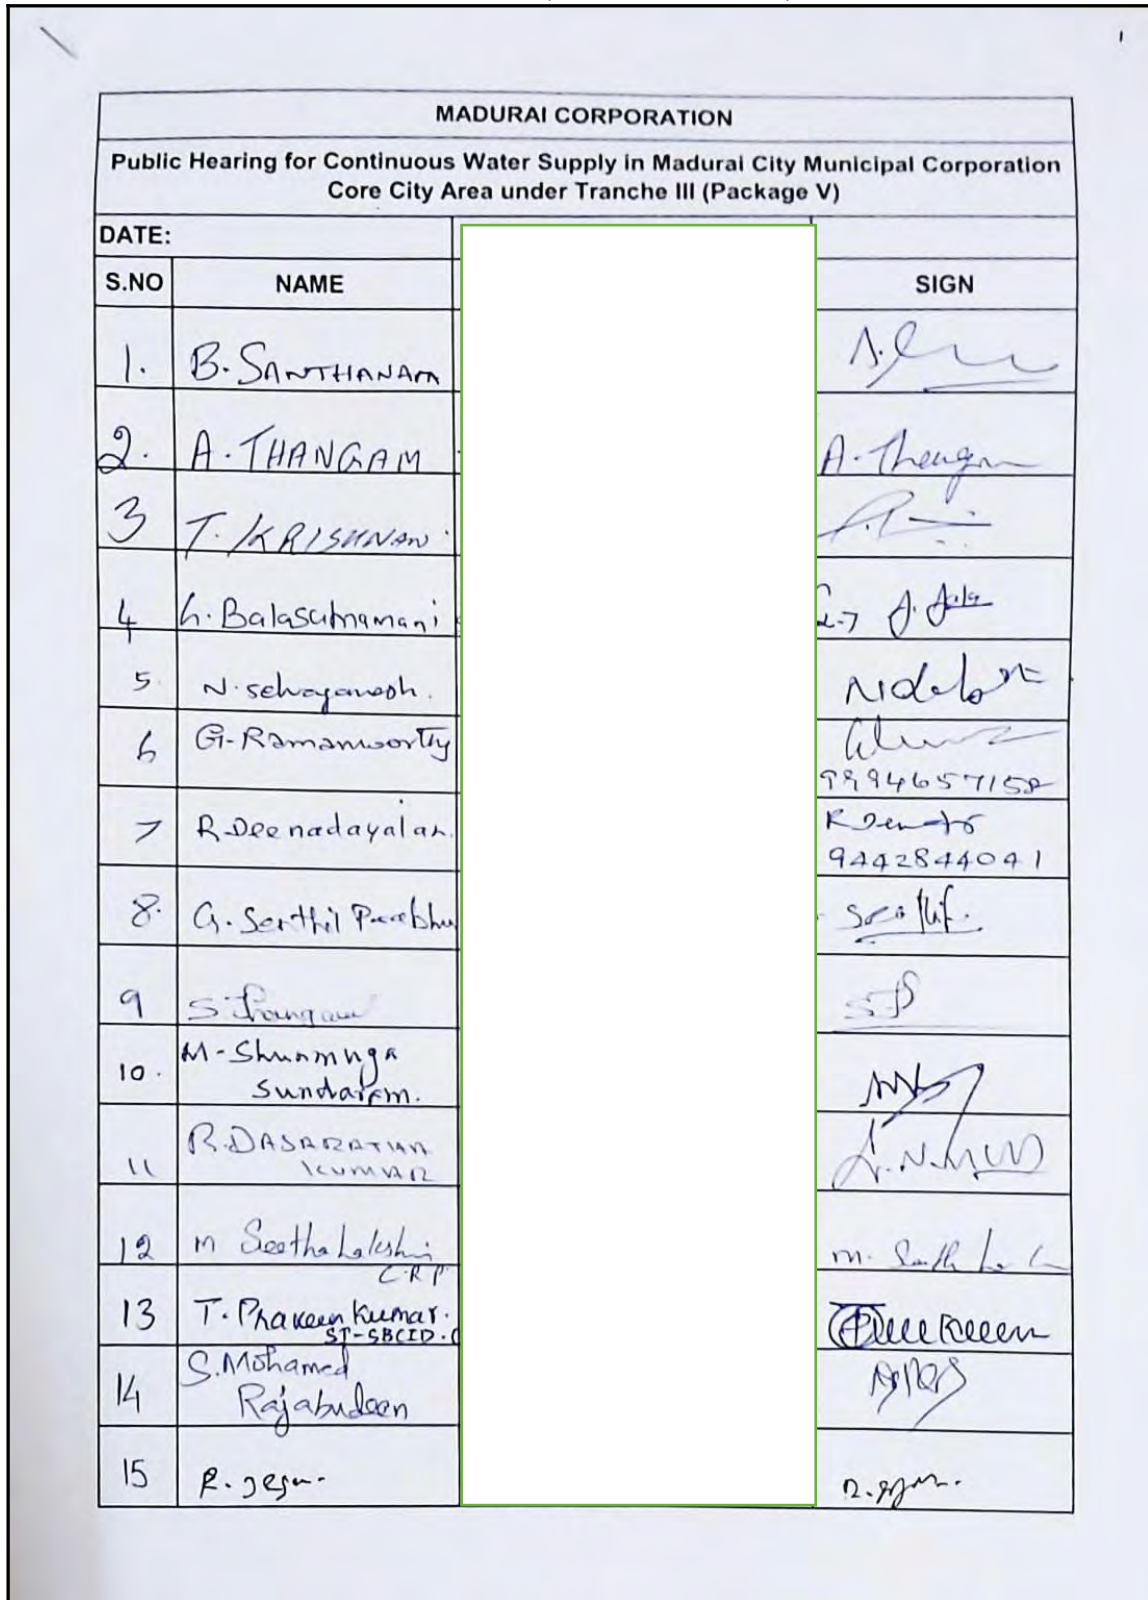 1
MADURAI CORPORATION
Public Hearing for Continuous Water Supply in Madurai City Municipal Corporation
Core City Area under Tranche III (Package V)
DATE:
S.NO NAME SIGN
1. B. SANTHANAM
2. A. THANGAM A. Thangam
3 T. KRISHNAN
4 Balasubramani
5. N. selvaganesh.
6 G. Ramamoorthy
9994657158
7 R. Deenadayalan.
9442844041
8. G. Senthil Prabhu
9 S. Thangam
10. M. Shunmuga
Sundaram.
11 R. DASARATHAN
KUMAR
12 M Seetha Lakshmi
C.R.P
13 T. Praveen Kumar.
ST-SBCID.
14 S. Mohamed
Rajabudeen
15 R.